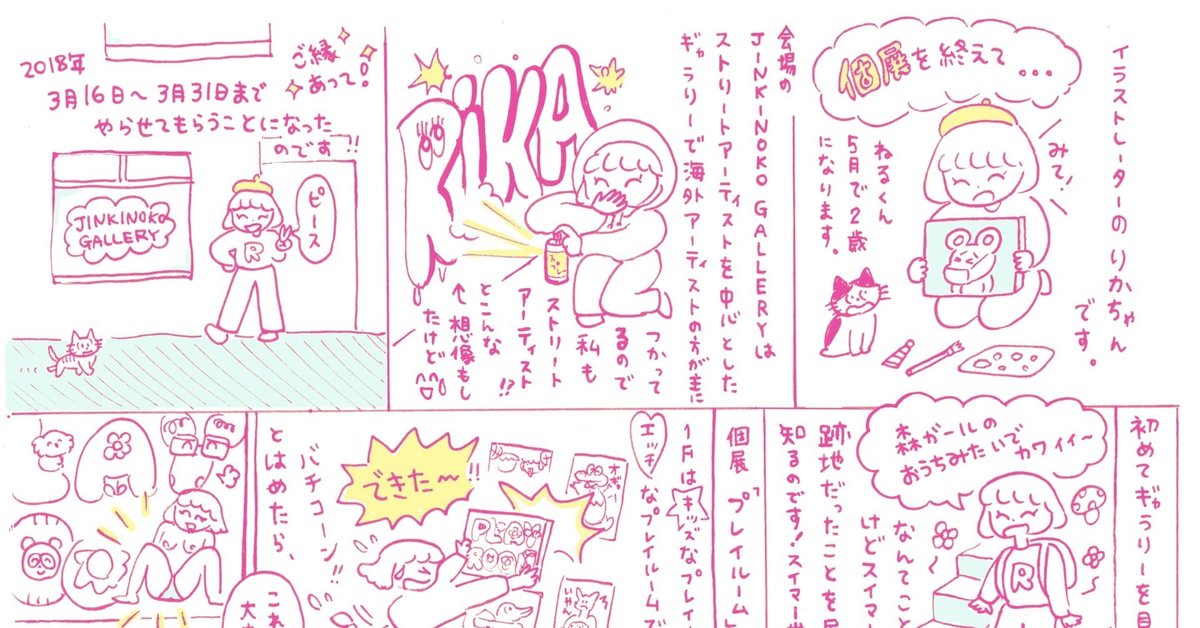 イラストレーターのりかちゃん
です。
個展を終えて…
みて!
ねるくん
5月で2歳
になります。
会場の
JINKINOKO GALLERYは
ストリートアーティストを中心とした
ギャラリーで海外アーティストの方が主に
つかって
るので
私も
ストリート
アーティスト
!?
とこんな
↑想像もし
たけど
RiKA
スプレー
ご縁
あって!
2018年
3月16日〜3月31日まで
やらせてもらうことになった
のです!!
ピース
R
JINKINOKO
GALLERY
初めてギャラリーを
森ガールの
おうちみたいで
カワイイ〜
なんてこと
けどスイマー
R
跡地だったことを
知るのです!スイマー
個展「プレイルーム」
1Fはキッズなプレイ
エッチなプレイルーム
できた〜!!
PLAY
ROOM
いやん
バチコーン!!
とはめたら、
これ
大